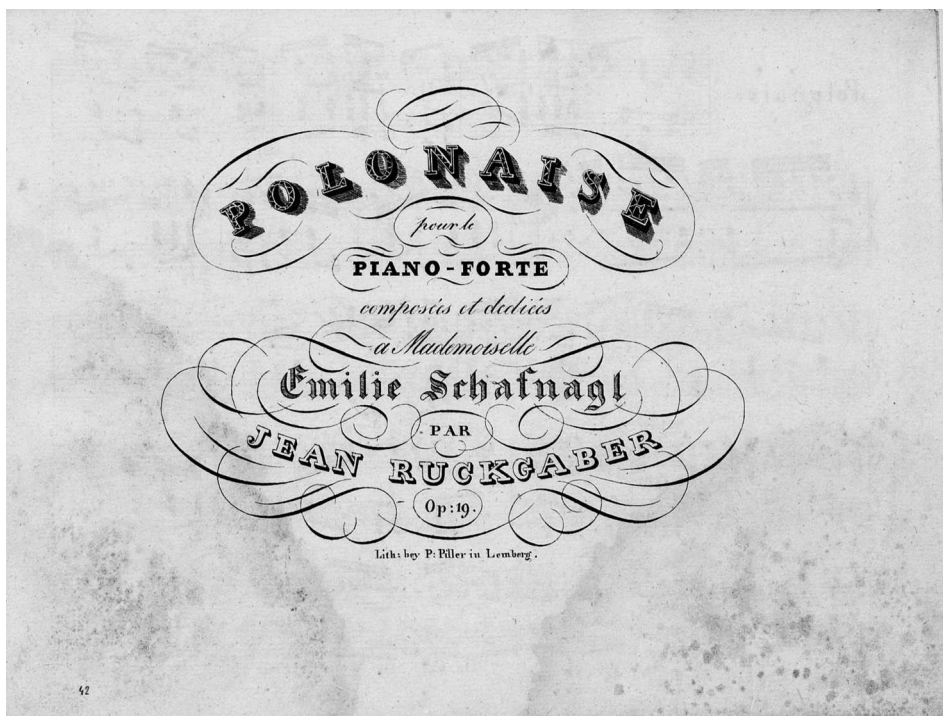 POLONAISE
pour le
PIANO-FORTE
composées et dediées
a Mademoiselle
Emilie Schafnagl
PAR
JEAN RUCKGABER
Op: 19.
Lith: bey P: Piller in Lemberg.
42